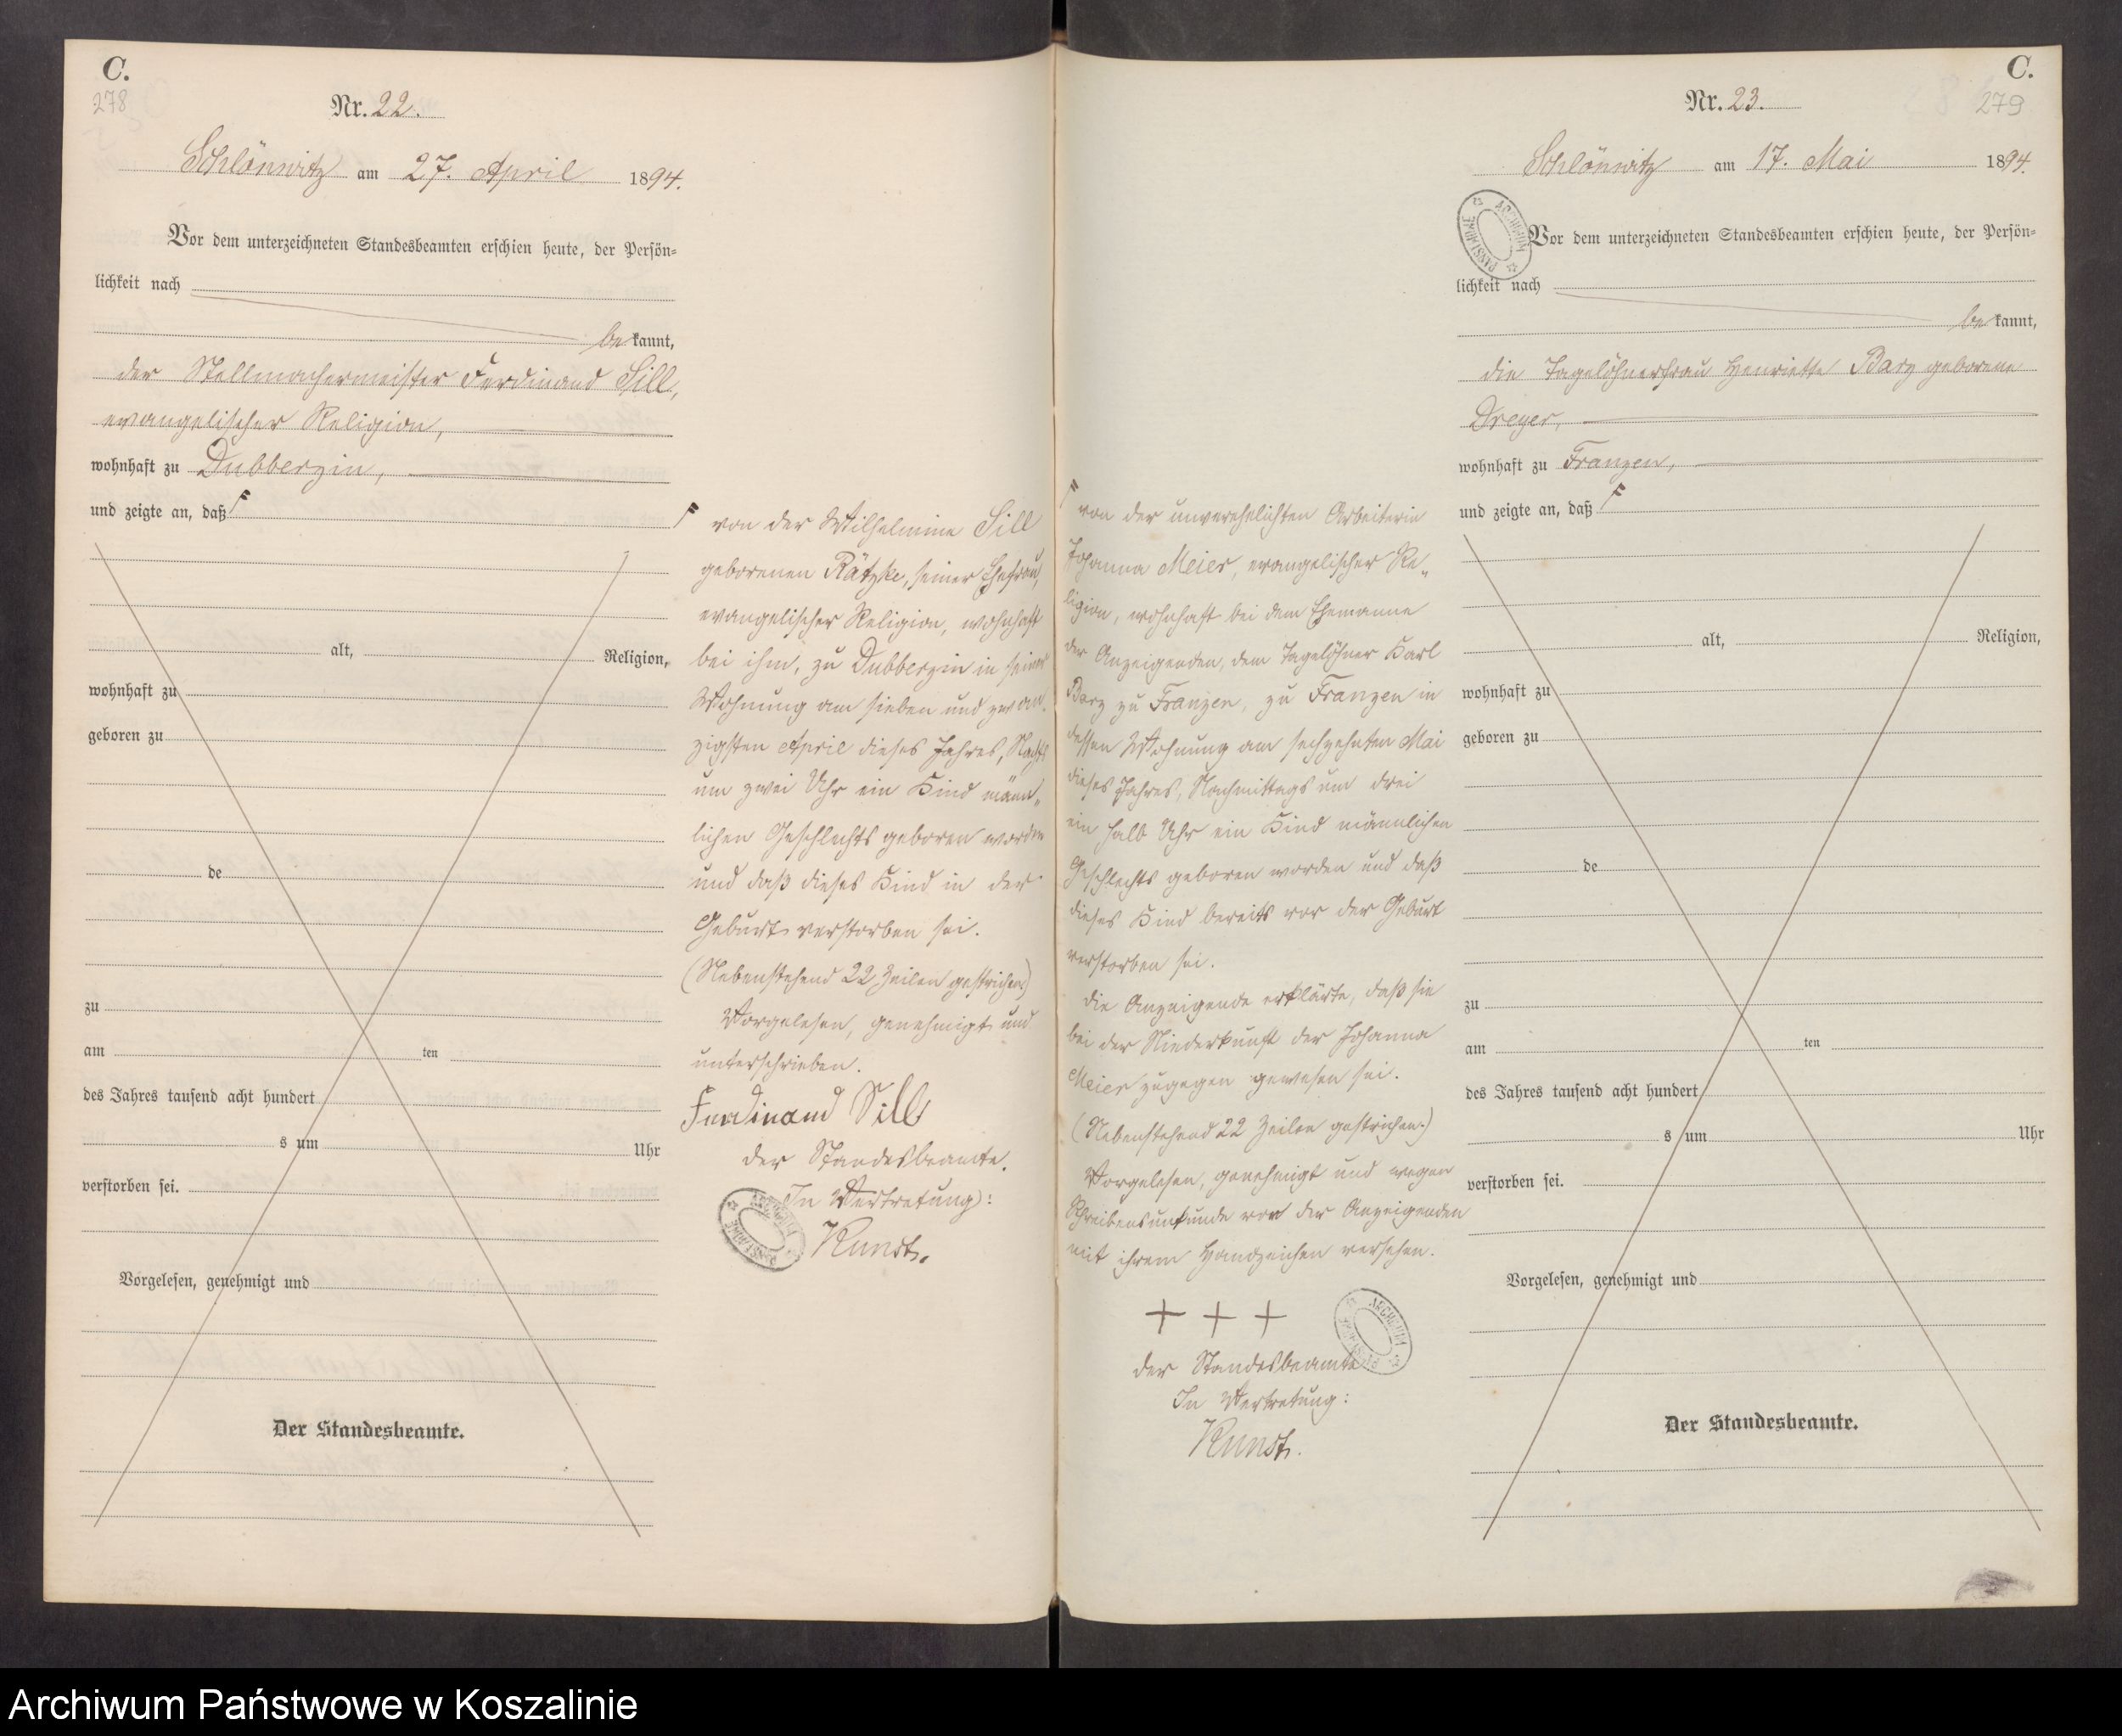 C.
278
Nr. 22.
Schlönwitz am 27. April 1894.
Vor dem unterzeichneten Standesbeamten erschien heute, der Persön=
lichkeit nach
be kannt,
der Stellmachermeister Ferdinand Sill,
evangelischer Religion,
wohnhaft zu Dubberzin,
und zeigte an, daß
alt, Religion,
wohnhaft zu
geboren zu
de
zu
am ten
des Jahres tausend acht hundert
s um Uhr
verstorben sei.
Vorgelesen, genehmigt und
Der Standesbeamte.
von der Wilhelmine Sill
geborenen Rätzke, seiner Ehefrau,
evangelischer Religion, wohnhaft
bei ihm, zu Dubberzin in seiner
Wohnung am sieben und zwan
zigsten April dieses Jahres, Nachts
um zwei Uhr ein Kind männ„
lichen Geschlechts geboren worden
und daß dieses Kind in der
Geburt verstorben sei.
(Nebenstehend 22 Zeilen gestrichen)
Vorgelesen, genehmigt und
unterschrieben.
Ferdinand Sill
der Standesbeamte.
In Vertretung:
Kunst.
C.
279
Nr. 23.
Schlönwitz am 17. Mai 1894.
ARCHIWUM PAŃSTWOWE
Vor dem unterzeichneten Standesbeamten erschien heute, der Persön=
lichkeit nach
be kannt,
die Tagelöhnerfrau Henriette Barz geborene
Dreyer,
wohnhaft zu Franzen,
und zeigte an, daß
von der unverehelichten Arbeiterin
Johanna Meier, evangelischer Re„
ligion, wohnhaft bei dem Ehemanne
der Anzeigenden, dem Tagelöhner Karl
Barz zu Franzen, zu Franzen in
dessen Wohnung am sechzehnten Mai
dieses Jahres, Nachmittags um drei
ein halb Uhr ein Kind männlichen
Geschlechts geboren worden und daß
dieses Kind bereits vor der Geburt
verstorben sei.
die Anzeigende erklärte, daß sie
bei der Niederkunft der Johanna
Meier zugegen gewesen sei.
(Nebenstehend 22 Zeilen gestrichen.)
Vorgelesen, genehmigt und wegen
Schreibensunkunde von der Anzeigenden
mit ihrem Handzeichen versehen.
+ + +
der Standesbeamte
In Vertretung:
Kunst.
alt, Religion,
wohnhaft zu
geboren zu
de
zu
am ten
des Jahres tausend acht hundert
s um Uhr
verstorben sei.
Vorgelesen, genehmigt und
Der Standesbeamte.
Archiwum Państwowe w Koszalinie